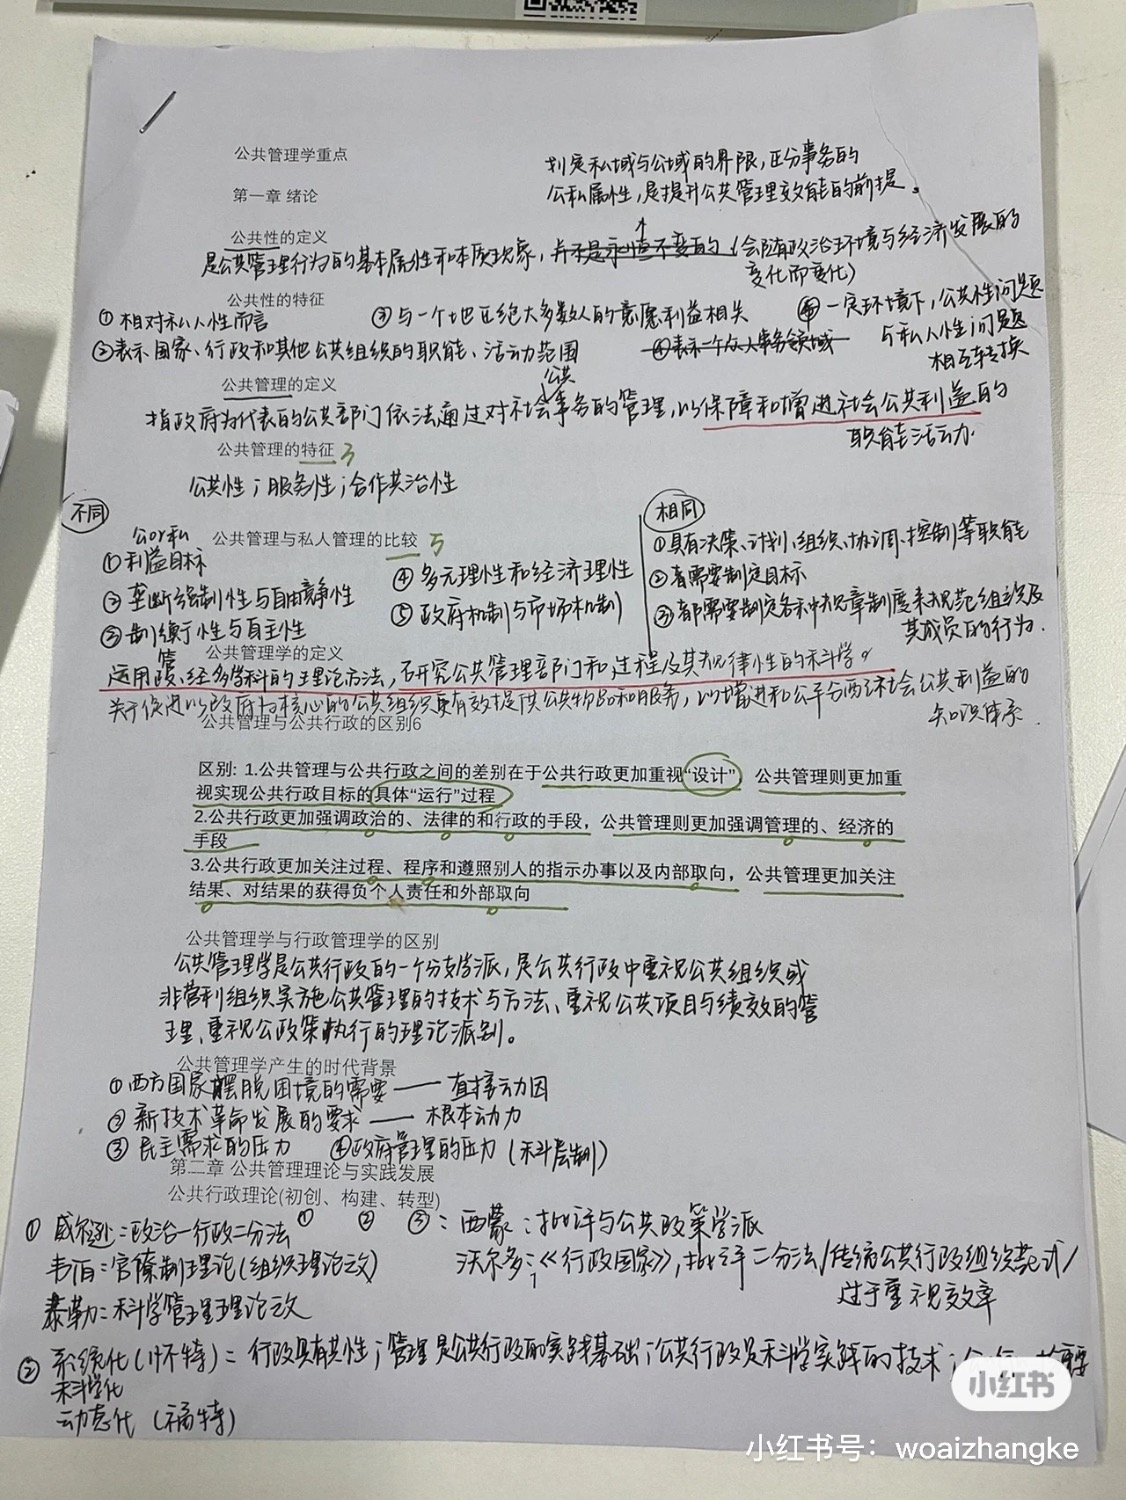 公共管理学重点
划定私域与公域的界限，区分事务的
公私属性，是提升公共管理效能的前提。
第一章 绪论
公共性的定义
是公共管理行为的基本属性和本质现象，并不是永恒不变的（会随政治环境与经济发展的
变化而变化）
公共性的特征
①相对私人性而言
③与一个地区绝大多数人的意愿利益相关
④一定环境下，公共性问题
与私人性问题
相互转换
②表示国家、行政和其他公共组织的职能、活动范围
④表示一个众人事务领域
公共管理的定义
公共
指政府为代表的公共部门依法通过对社会事务的管理，以保障和增进社会公共利益的
职能活动.
公共管理的特征 3
公共性；服务性；合作共治性
不同
公or私
公共管理与私人管理的比较 5
①利益目标
②垄断强制性与自由竞争性
③制衡性与自主性
④多元理性和经济理性
⑤政府机制与市场机制
相同
①具有决策、计划、组织、协调、控制等职能
②都需要制定目标
③都需要制定各种规章制度来规范组织及
其成员的行为.
公共管理学的定义
管
运用政、经多学科的理论方法，研究公共管理部门和过程及其规律性的科学。
关于促进以政府为核心的公共组织更有效提供公共物品和服务，以增进和公平分配社会公共利益的
知识体系.
公共管理与公共行政的区别6
区别: 1.公共管理与公共行政之间的差别在于公共行政更加重视“设计” 公共管理则更加重
视实现公共行政目标的具体“运行”过程
2.公共行政更加强调政治的、法律的和行政的手段，公共管理则更加强调管理的、经济的
手段
3.公共行政更加关注过程、程序和遵照别人的指示办事以及内部取向，公共管理更加关注
结果、对结果的获得负个人责任和外部取向
公共管理学与行政管理学的区别
公共管理学是公共行政的一个分支学派，是公共行政中重视公共组织或
非营利组织实施公共管理的技术与方法、重视公共项目与绩效的管
理、重视公政策执行的理论派别。
公共管理学产生的时代背景
①西方国家摆脱困境的需要——直接动因
②新技术革命发展的要求——根本动力
③民主需求的压力 ④政府管理的压力（科层制）
第二章 公共管理理论与实践发展
公共行政理论(初创、构建、转型)
① ② ③：西蒙：批评与公共政策学派
①威尔逊：政治—行政二分法
韦伯：官僚制理论（组织理论之父）
沃尔多：《行政国家》，批评二分法/传统公共行政组织范式/
过于重视效率
泰勒：科学管理理论之父
②系统化（怀特）：行政具有共性；管理是公共行政的实践基础；公共行政是科学实践的技术；
科学化
动态化（福特）
小红书
小红书号：woaizhangke